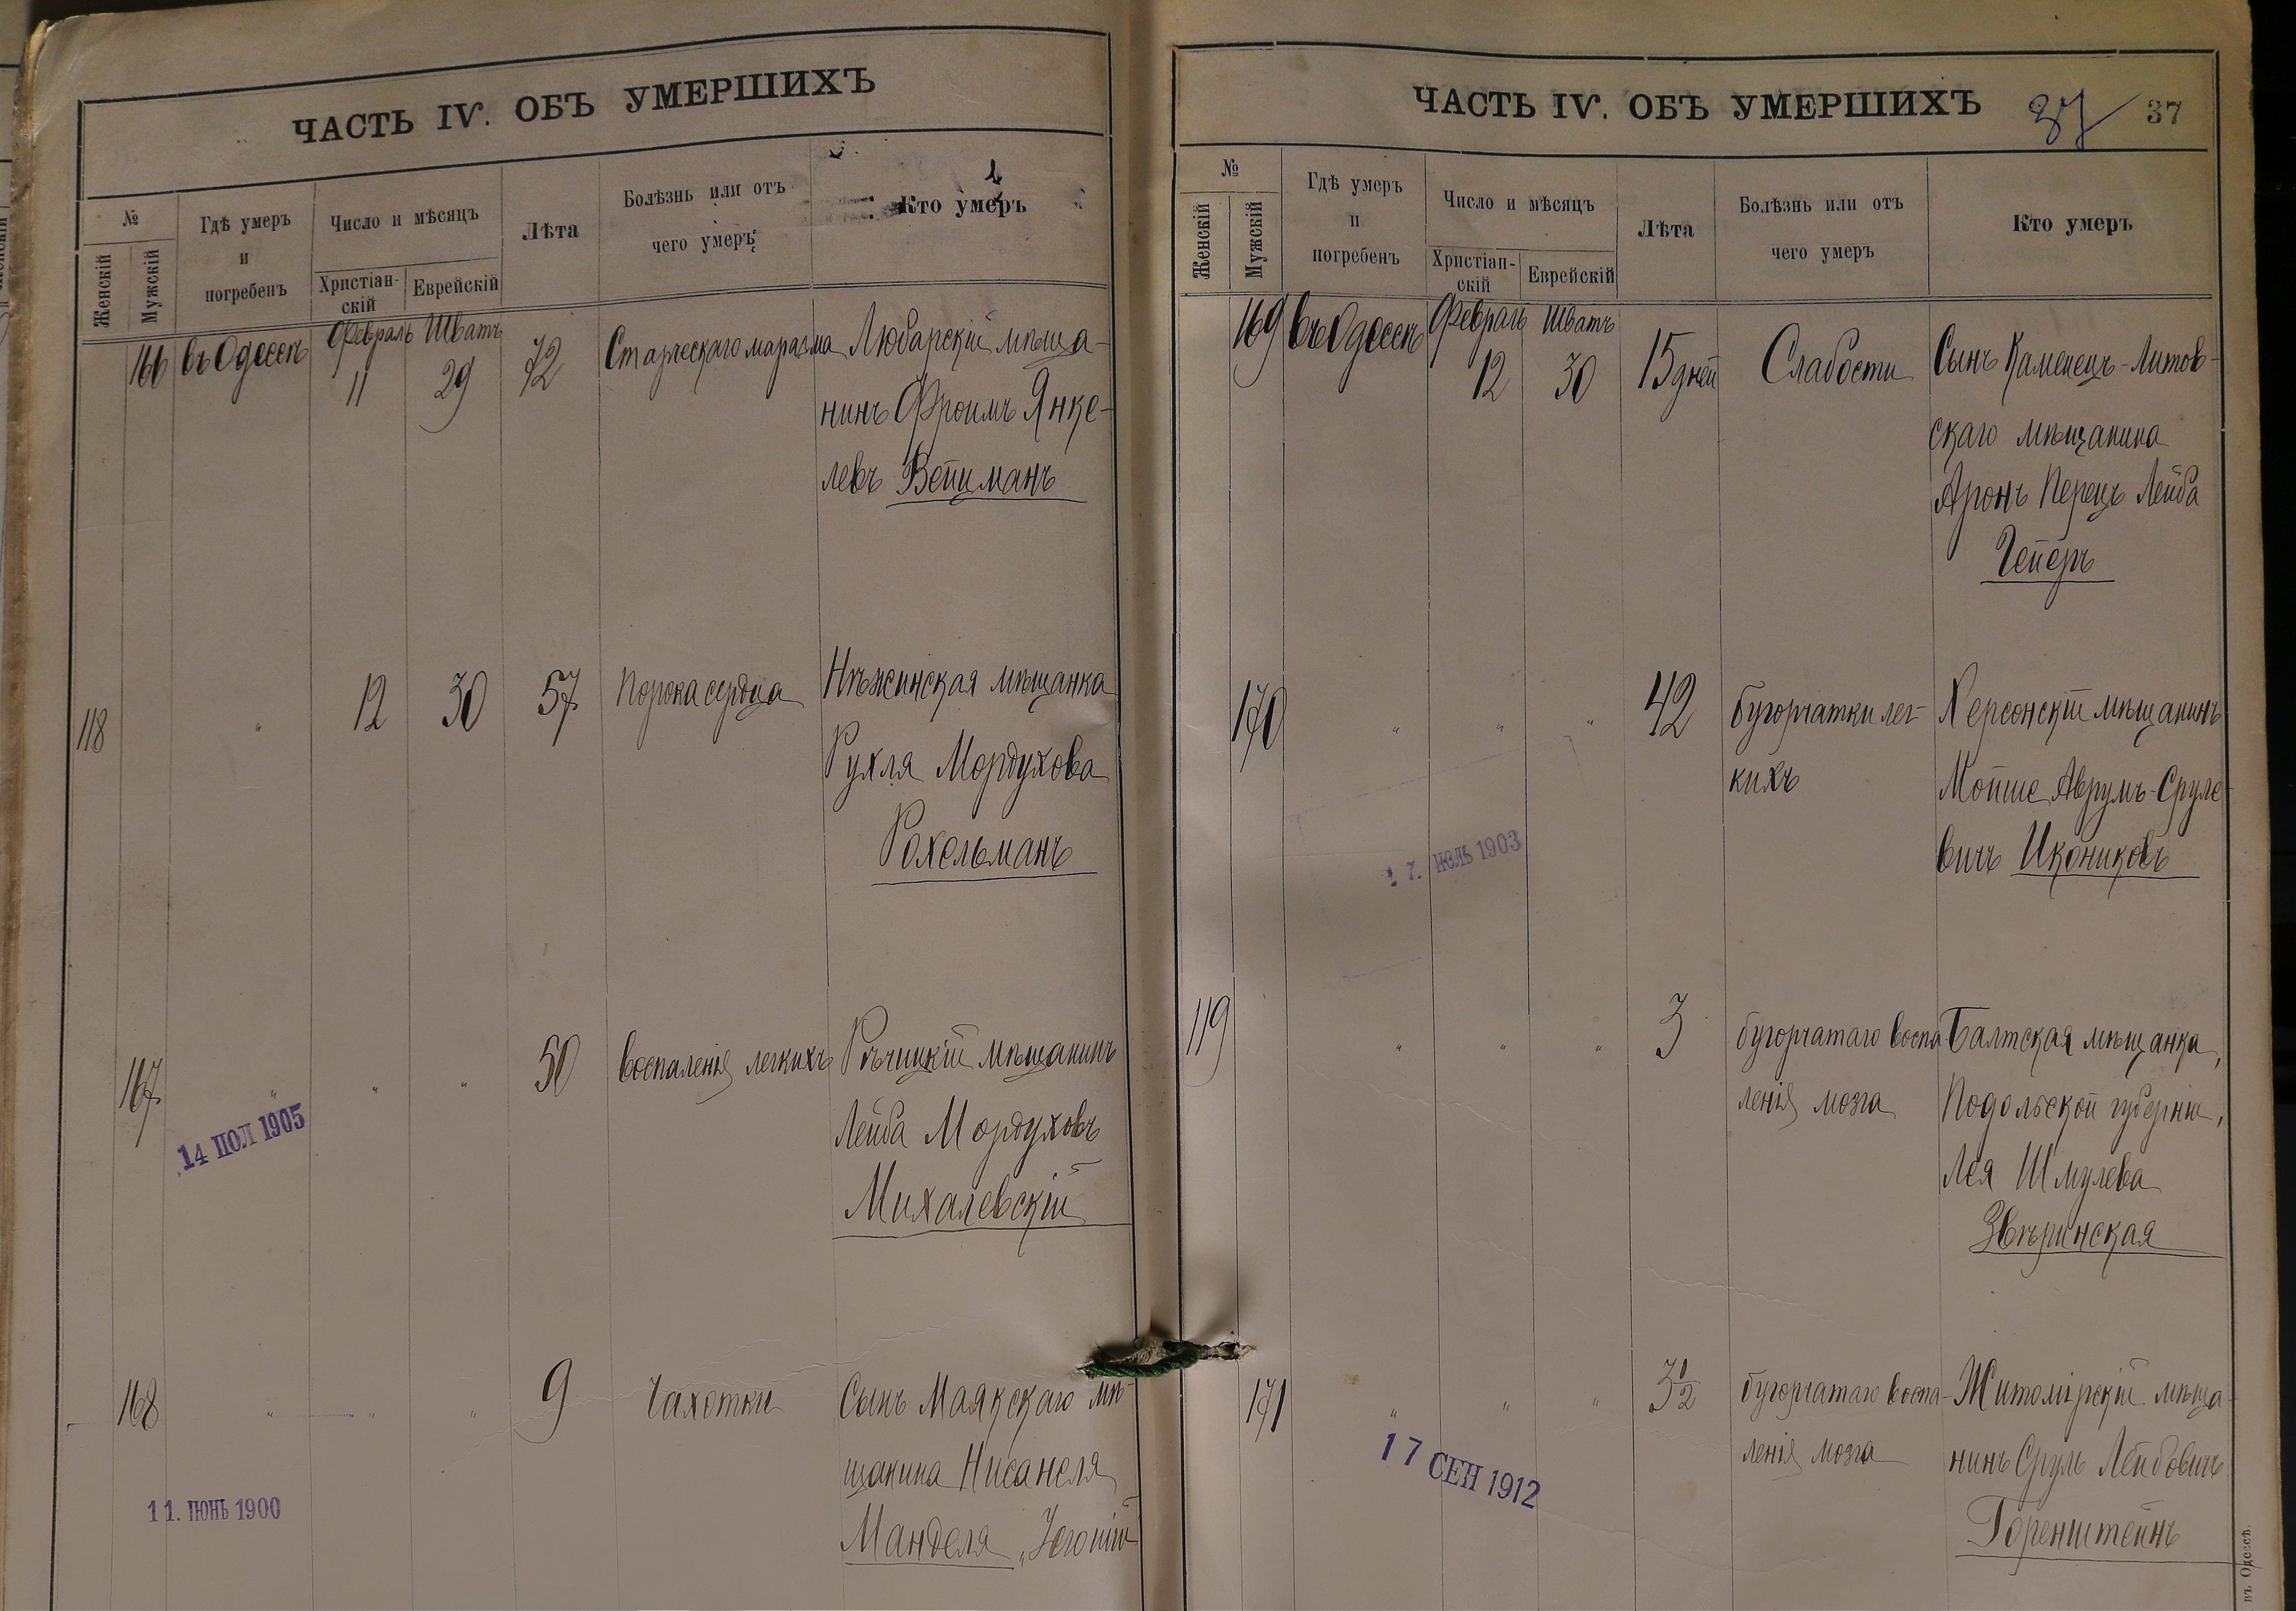 ЧАСТЬ IV. ОБЪ УМЕРШИХЪ
№
Женскій
Мужскій
Гдѣ умеръ
и
погребенъ
Число и мѣсяцъ
Христіан-
скій
Еврейскій
Лѣта
Болѣзнь или отъ
чего умеръ
Кто умеръ
166 въ Одессѣ Февраль Шватъ 72 Старческаго маразма Любарскій мѣща-
11 29
нинъ Фроимъ Янке-
левъ Вейцманъ
118 " 12 30 57 Порока сердца Нѣжинская мѣщанка
Рухля Мордухова
Рохельманъ
167 " " " 50 Воспаленія легкихъ Рѣчицкій мѣщанинъ
14 ІЮЛ 1905
Лейба Мордуховъ
Михалевскій
168 " " " 9 Чахотки Сынъ Маякскаго мѣ-
щанина Нисанеля
11. ІЮНЬ 1900
Манделя
ЧАСТЬ IV. ОБЪ УМЕРШИХЪ 37 37
№
Женскій
Мужскій
Гдѣ умеръ
и
погребенъ
Число и мѣсяцъ
Христіан-
скій
Еврейскій
Лѣта
Болѣзнь или отъ
чего умеръ
Кто умеръ
169 въ Одессѣ Февраль Шватъ 15 дней Слабости Сынъ Каменецъ-Литов-
12 30
скаго мѣщанина
Аронъ Перецъ Лейба
Гейеръ
170 " " " 42 бугорчатки лег- Херсонскій мѣщанинъ
кихъ Мойше Аврумъ-Сруле-
7. 1903
вичъ Икониковъ
119 " " " 3 бугорчатаго воспа Балтская мѣщанка,
ленія мозга Подольской губерніи,
Лея Шмулева
Звѣринская
171 " " " 3½ бугорчатаго воспа- Житомірскій мѣща-
ленія мозга нинъ Сруль Лейбовичъ
17 СЕН 1912
Горенштейнъ
въ Одессѣ.